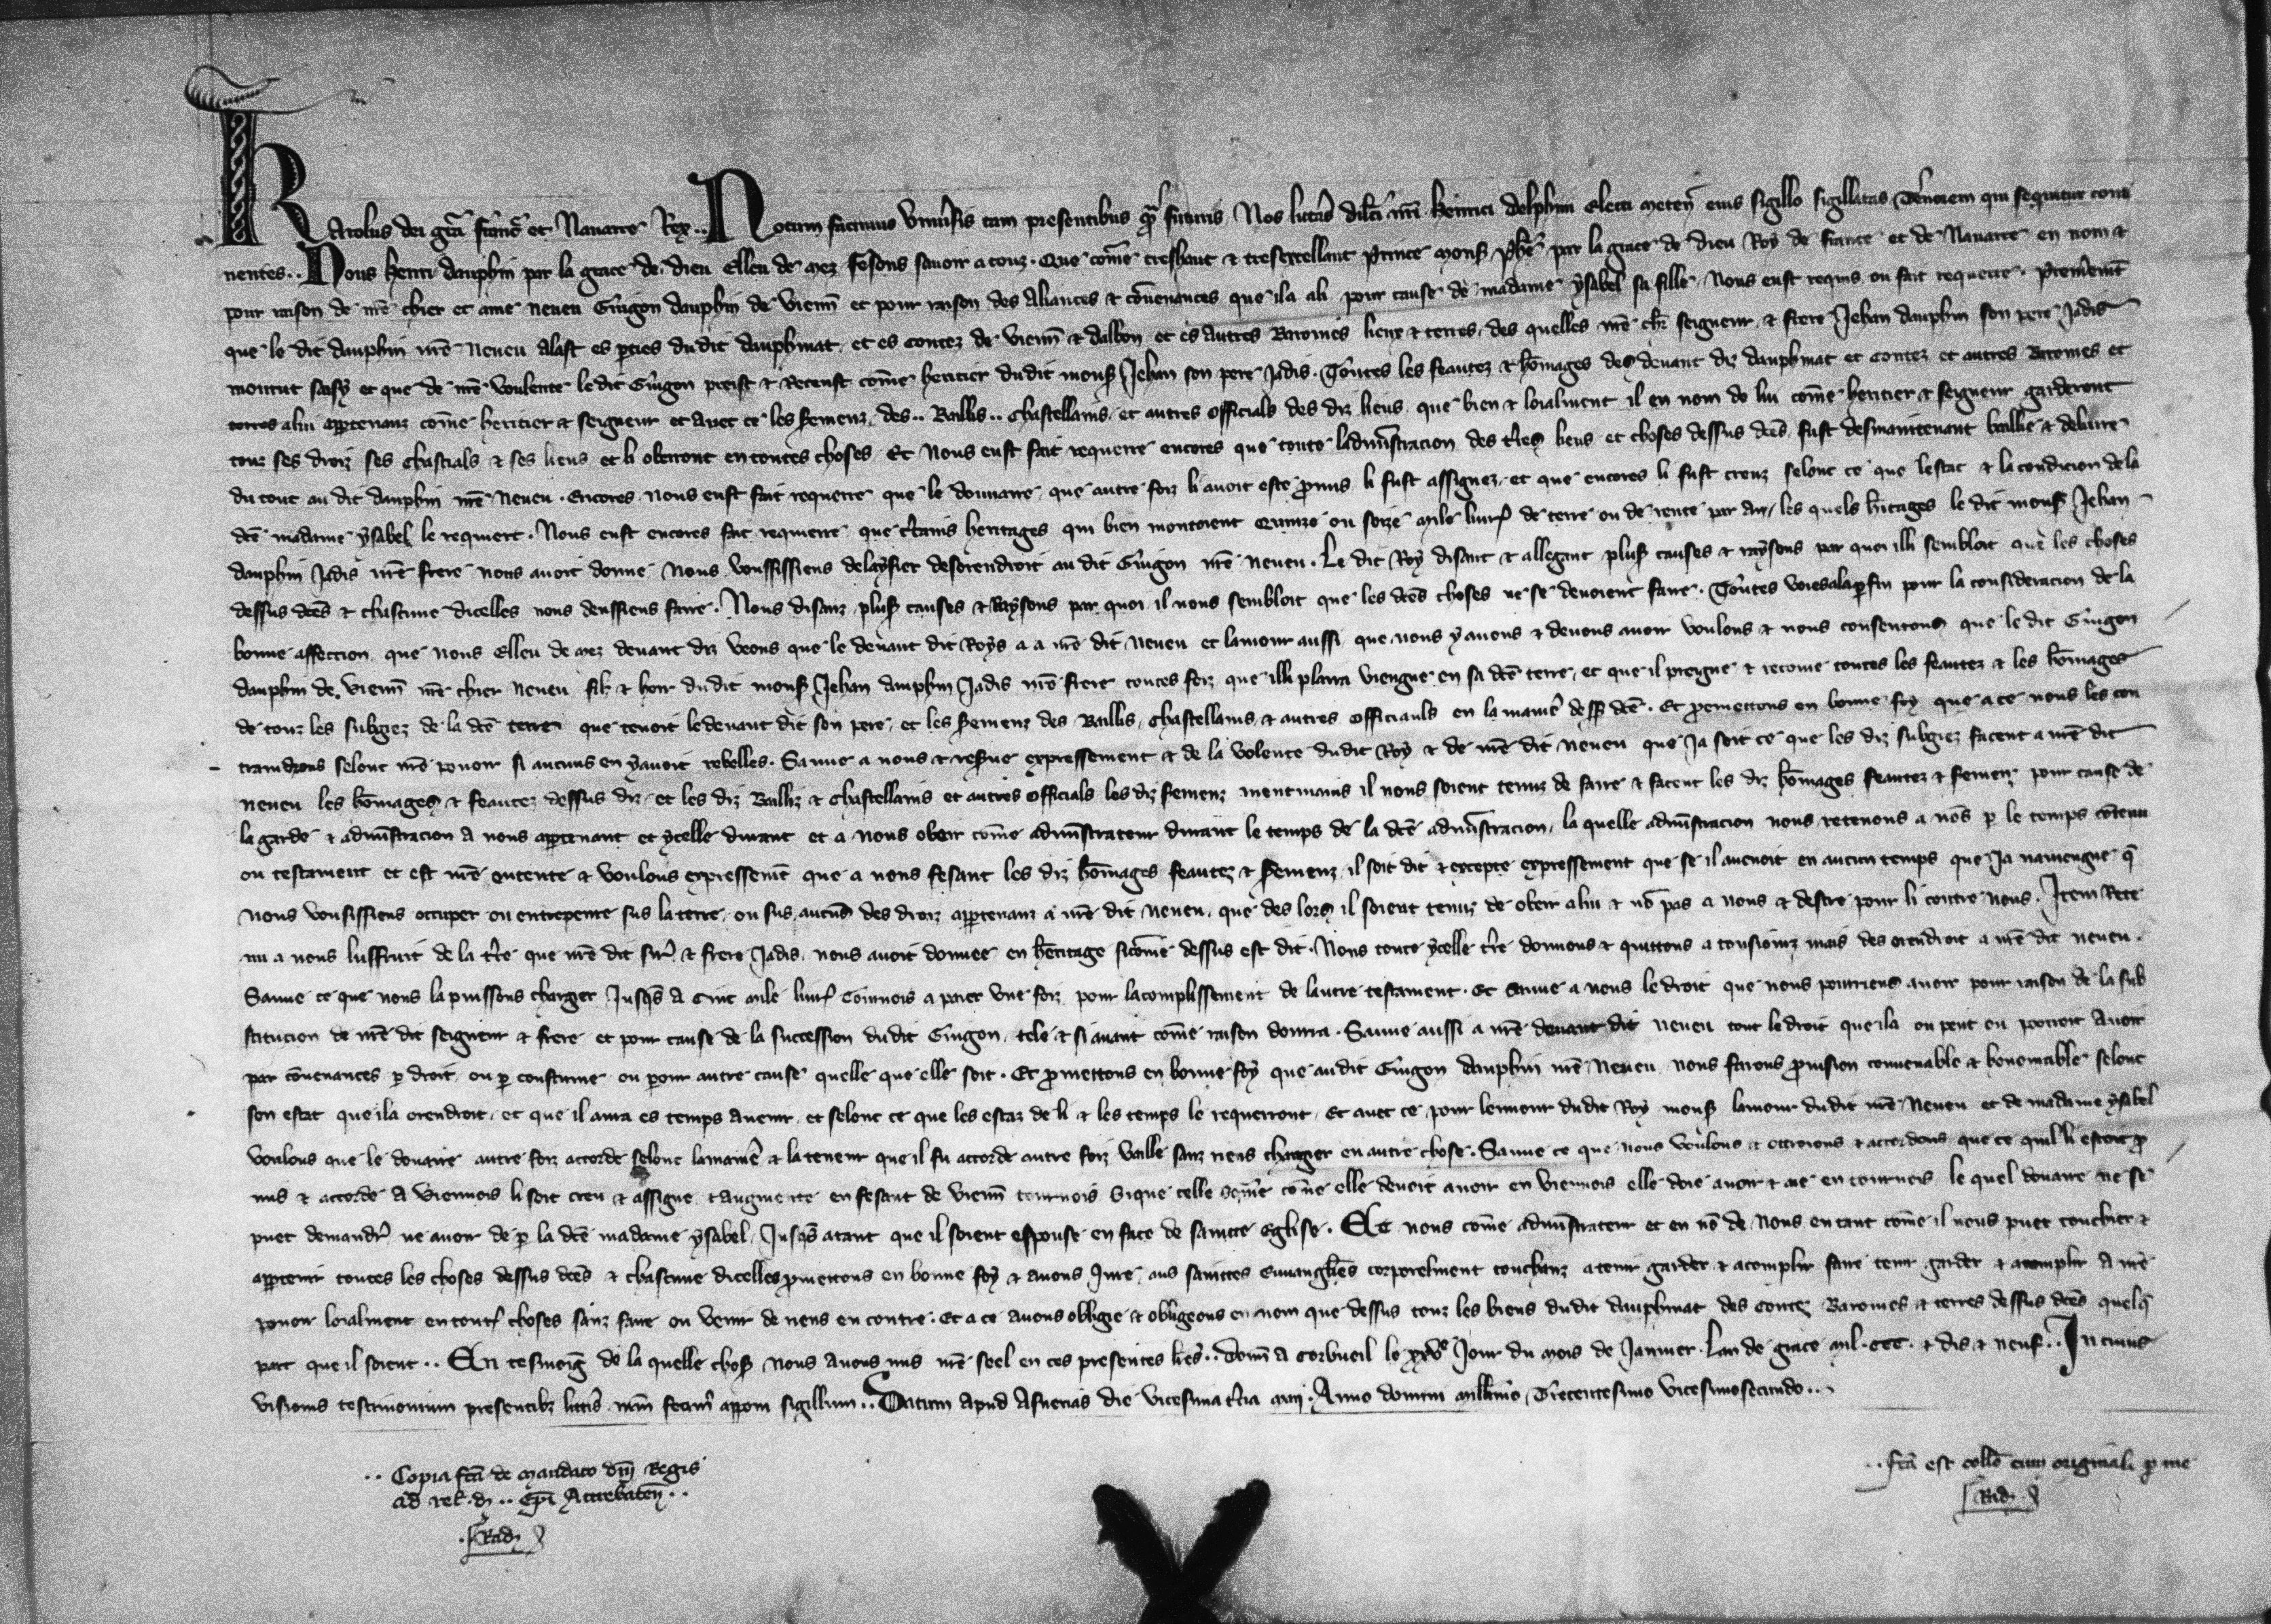 Karolus dei gra͞ franc̃ et Nauarre Rex .. Notum facimus Uniuersis tam presentibus q̃ futuris Nos litteras dilc̃i nr̃i henrici delphini Electi meteñ eius sigillo sigillatas Tenorem qui sequitur conti
nentes .. Nous henri dauphin par la grace de dieu Esleu de Mez fesons sauoir a touz . Que com̃e treshaut & tresexcellant Prince mons̃ Phẽ par la grace de dieu Roy de france et de Nauarre en nom &
pour raison de nr̃e chier et ame neueu Guigon dauphin de vienñ et pour raison des aliances & conuenances que il a a li pour cause de madame ysabel sa fille . Nous eust requis ou fait requerre . Premerem̃t
que le dit dauphin nr̃e neueu alast es p̱ties du dit dauphinat et es contez de vienñ & dalbon et es autres Baronnies lieux & terres des quelles nr̃e chr̃ seigneur & frere Jehan dauphin son pere Jadis
mourut saisy et que de nr̃e voulente le dit Guigon preist & Receust com̃e heritier du dit mons̃ Jehan son pere Jadis . Toutes les feautez & hom̃ages des deuant diz dauphinat et contez et autres Baronnies et
terres a lui app̱tenanz com̃e heritier & seigneur et auec ce les ẜemenz des .. Baillis .. Chastellains et autres officials des diz lieus que bien & loialment il en nom de lui com̃e heritier & seigneur garderont
touz ses droiz ses chastials & ses lieus et li obeiront en toutes choses Et Nous eust fait requerre encores que toute ladmĩstracion des tr̃es lieus et choses dessus dc̃es fust desmaintenant baillie & deliuree
du tout au dit dauphin nr̃e neueu . Encores nous eust fait requerre que le douuaire que autre foiz li auoit este promis li fust assignez et que encores li fust creuz selonc ce que lestat & la condicion de la
dc̃e madame ysabel le requiert . Nous eust encores fait requerre que c̃tains heritages qui bien montoient Quinze ou seize mile liur̃ de terre ou de rente par an / les quels hr̃itages le dit mons̃ Jehan
dauphin Jadis nr̃e frere nous auoit donne Nous voussissiens delayssier desorendroit au dit Guigon nr̃e neueu . Le dit Roy disant & allegant plus̃ causes & raysons par quoi illi sembloit que les choses
dessus dc̃es & chascune dicelles nous deussiens faire . Nous disanz plus̃ causes & Raysons par quoi il nous sembloit que les dc̃es choses ne se deuoient faire . Toutes voies a la p̱fin pour la consideracion de la
bonne affeccion que nous Esleu de mez deuant diz veons que le deuant dit Roys a a nr̃e dit neueu et lamour aussi que nous y auons & deuons auoir voulons & nous consentons que le dit Guigon
dauphin de vienñ nr̃e chier neueu filz & hoir du dit mons̃ Jehan dauphin Jadis nr̃e frere toutes foiz que illi plaira viengne en sa dc̃e terre et que il preigne & recoiue toutes les feautez & les hom̃ages
de touz les subgiez de la dc̃e terre que tenoit le deuant dit son pere et les ẜemenz des Baillis Chastellains & autres officiauls en la manier̃ dess̃ dc̃e . Et p̱mettons en bonne foy que a ce nous les con
traindrons selonc nr̃e pouoir si aucuns en y auoit rebelles . Sauue a nous & reẜue expressement & de la volente du dit Roy & de nr̃e dit neueu que Ja soit ce que les diz subgiez facent a nr̃e dit
neueu les hom̃ages & feautez dessus diz et les diz Bailliz & Chastellains et autres officials les diz ẜemenz nientmains il nous soient tenuz de faire & facent les diz hom̃ages feautez & ẜemenz pour cause de
la garde & admĩstracion a nous app̱tenant et ycelle durant et a nous obeir com̃e admĩstrateur durant le temps de la dc̃e admĩstracion / la quelle admĩstracion nous retenons a nos̃ p̱ le temps contenu
ou testament et est nr̃e entente & voulons expressem̃t que a nous fesant les diz hom̃ages feautez & ẜemenz il soit dit & excepte expressement que se il auenoit en aucun temps que Ja nauiengne q̃
nous vousissiens occuper ou entrepenre sus la terre ou sus aucuns des droiz app̱tenanz a nr̃e dit neueu que des lors il soient tenuz de obeir a lui & no᷃ pas a nous & destre pour li contre nous . Item Rete
nu a nous lusfruit de la tr̃e que nr̃e dit sirẽ & frere Jadis nous auoit donnee en hr̃itage sicom̃e dessus est dit . Nous toute ycelle tr̃e donnons & quittons a tousiours mais des orendroit a nr̃e dit neueu .
Sauue ce que nous la puissons charger Jusq̃s a Cinc mile liur̃ Tournois a paier vne foiz pour lacomplissement de lautre testament . Et sauue a nous le droit que nous pourriens auoir pour raison de la sub
stitucion de nr̃e dit seigneur & frere et pour cause de la succession du dit Guigon tele & si auant com̃e raison donrra . Sauue aussi a nr̃e deuant dit neueu tout le droit que il a ou peut ou porroit auoir
par conuenances p̱ droit ou p̱ constume ou pour autre cause quelle que elle soit . Et p̱mettons en bonne foy que au dit Guigon dauphin nr̃e neueu nous ferons p̱uision conuenable & honorable selonc
son estat que il a orendroit et que il aura es temps auenir et selonc ce que les estaz de li & les temps le requerront . Et auec ce pour lennour du dit Roy mons̃ lamour du dit nr̃e neueu et de madame ysabel
voulons que le douaire autre foiz accorde selonc la manier̃ & la teneur que il fu accorde autre foiz vaille sanz riens changer en autre chose . Sauue ce que nous voulons & ottroions & accordons que ce quil li estoit p̱
mis & accorde a viennois li soit creu & assigne & augmente en fesant de vienñ tournois si que telle som̃e com̃e elle deuoit auoir en viennois elle doie auoir & ait en tournois le quel douaire ne se
puet demandr̃ ne auoir de p̱ la dc̃e madame ysabel Jusq̃s a tant que il soient espouse en face de saincte Eglise . Et nous com̃e admĩstrateur et en no᷃ de nous en tant com̃e il nous puet touchier &
app̱tenir toutes les choses dessus dc̃es & chascune dicelles p̱mettons en bonne foy & auons Jure aus sainctes euuangiles corporelment touchanz a tenir garder & acomplir faire tenir garder & acomplir a nr̃e
pouoir loialment en tout̃ choses sanz faire ou venir de riens en contre . Et a ce auons obligie & obligeons en nom que dessus touz les biens du dit dauphinat des Contez Baronnies & terres dessus dc̃es quelq̃
part que il soient .. En tesmoig̃ de la quelle chos̃ nous auons mis nr̃e seel en ces presentes lr̃es .. Donñ a Corbueil le xxvᵉ Jour du mois de Januier . Lan de grace mil . ccc . & dis & neuf .. In cuius
visionis testimonium presentibz litteris nr̃m fecim̃ apponi sigillum .. Datum apud Asnerias die vicesima tc̃ia maij . Anno domini millesimo Trecentesimo vicesimosecundo ..
.. Copia fc̃a de mandato dñi Regis
ad rel̃ . d .. Ep̃i Attrebateñ ..
.. fc̃a est coll̃o cum originali p̱ me